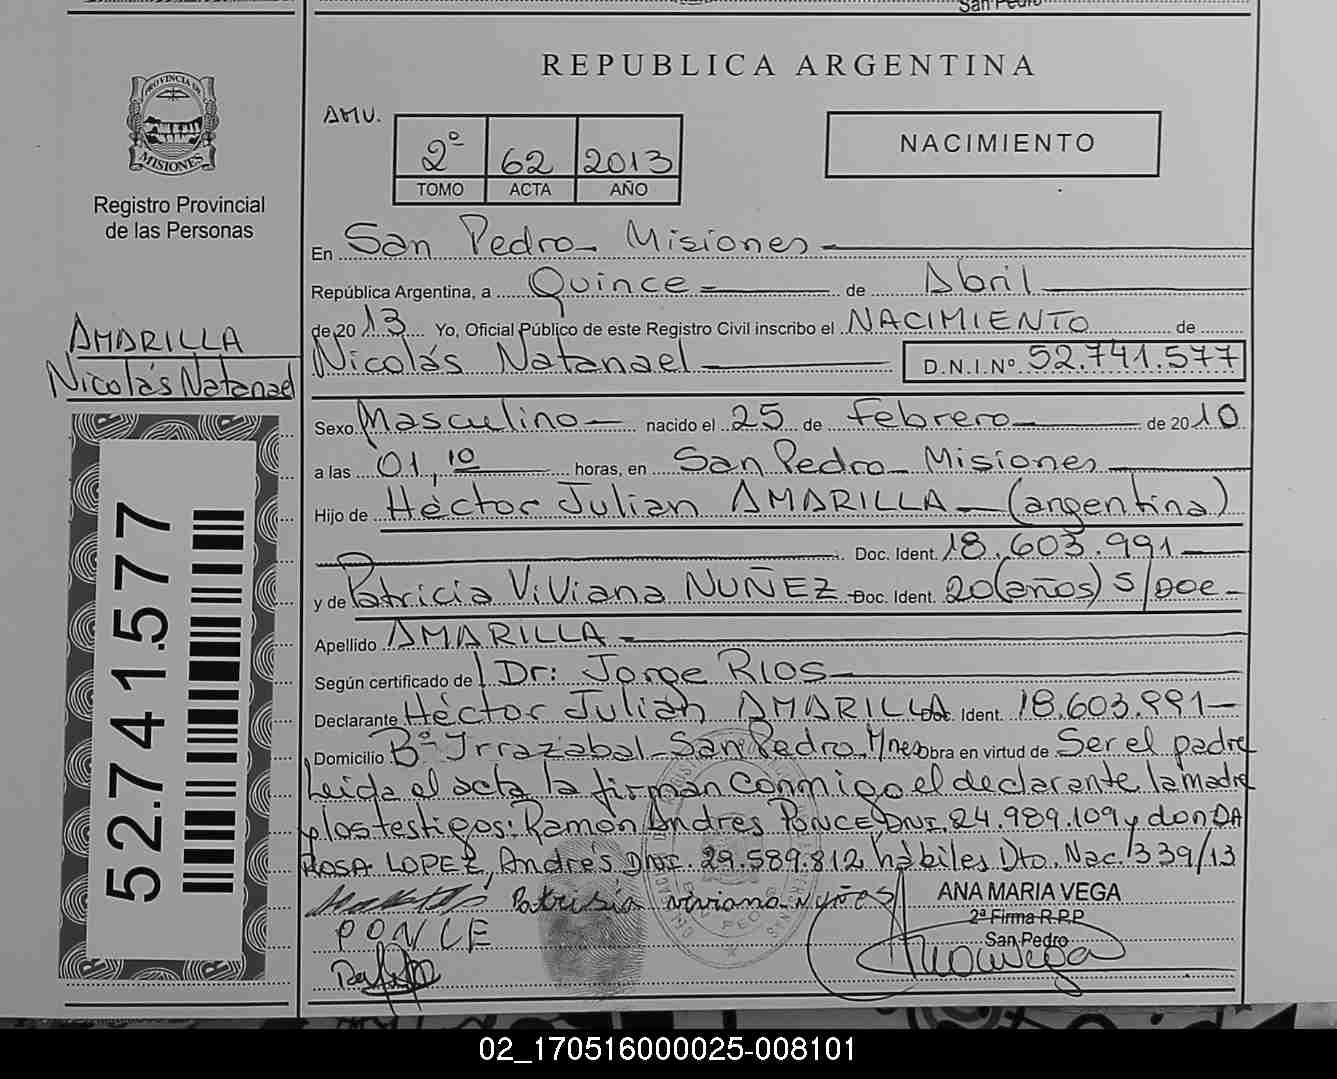 San Pedro
REPUBLICA ARGENTINA
PROVINCIA DE
MISIONES
Registro Provincial
de las Personas
AMU.
2º 62 2013
TOMO ACTA AÑO
NACIMIENTO
En San Pedro - Misiones
República Argentina, a Quince de Abril
de 2013 Yo, Oficial Público de este Registro Civil inscribo el NACIMIENTO de
AMARILLA
Nicolás Natanael
Nicolás Natanael D.N.I.Nº 52.741.577
Sexo Masculino nacido el 25 de Febrero de 2010
a las 01,10 horas, en San Pedro - Misiones
Hijo de Héctor Julian AMARILLA - (argentina)
Doc. Ident. 18.603.991
y de Patricia Viviana NUÑEZ Doc. Ident. 20 (años) S/DOC-
Apellido AMARILLA
Según certificado de Dr: Jorge RIOS
Declarante Héctor Julián AMARILLA Doc. Ident. 18.603.991-
Domicilio Bº Irrazabal - San Pedro. Mnes obra en virtud de Ser el padre
Leida el acta la firman conmigo el declarante, la madre
y los testigos: Ramón Andres PONCE DNI. 24.989.109 y don DA
ROSA LOPEZ, Andrés DNI. 29.589.812, hábiles Dto. Nac. 1339/13
52.741.577
Viviana NUÑES
ANA MARIA VEGA
2ª Firma R.P.P
San Pedro
PONCE
02_170516000025-008101